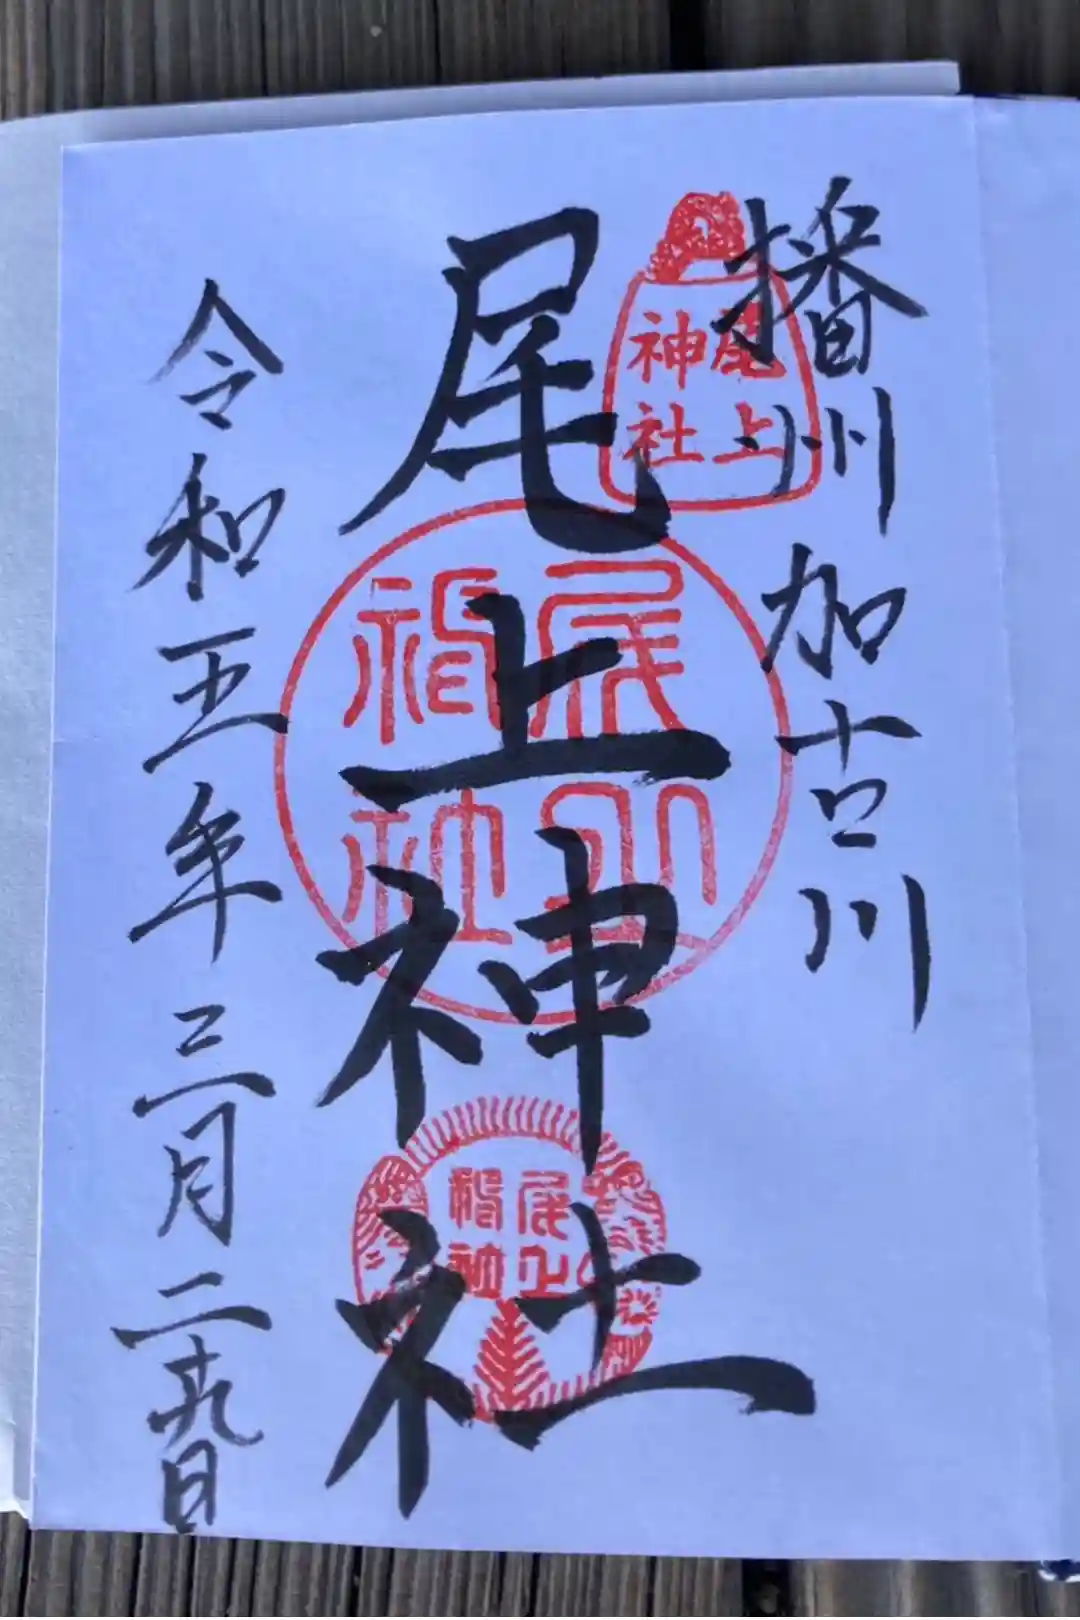 播州加古川
尾上
神社
尾上神社
尾上
神社
尾上
神社
令和五年三月二十九日